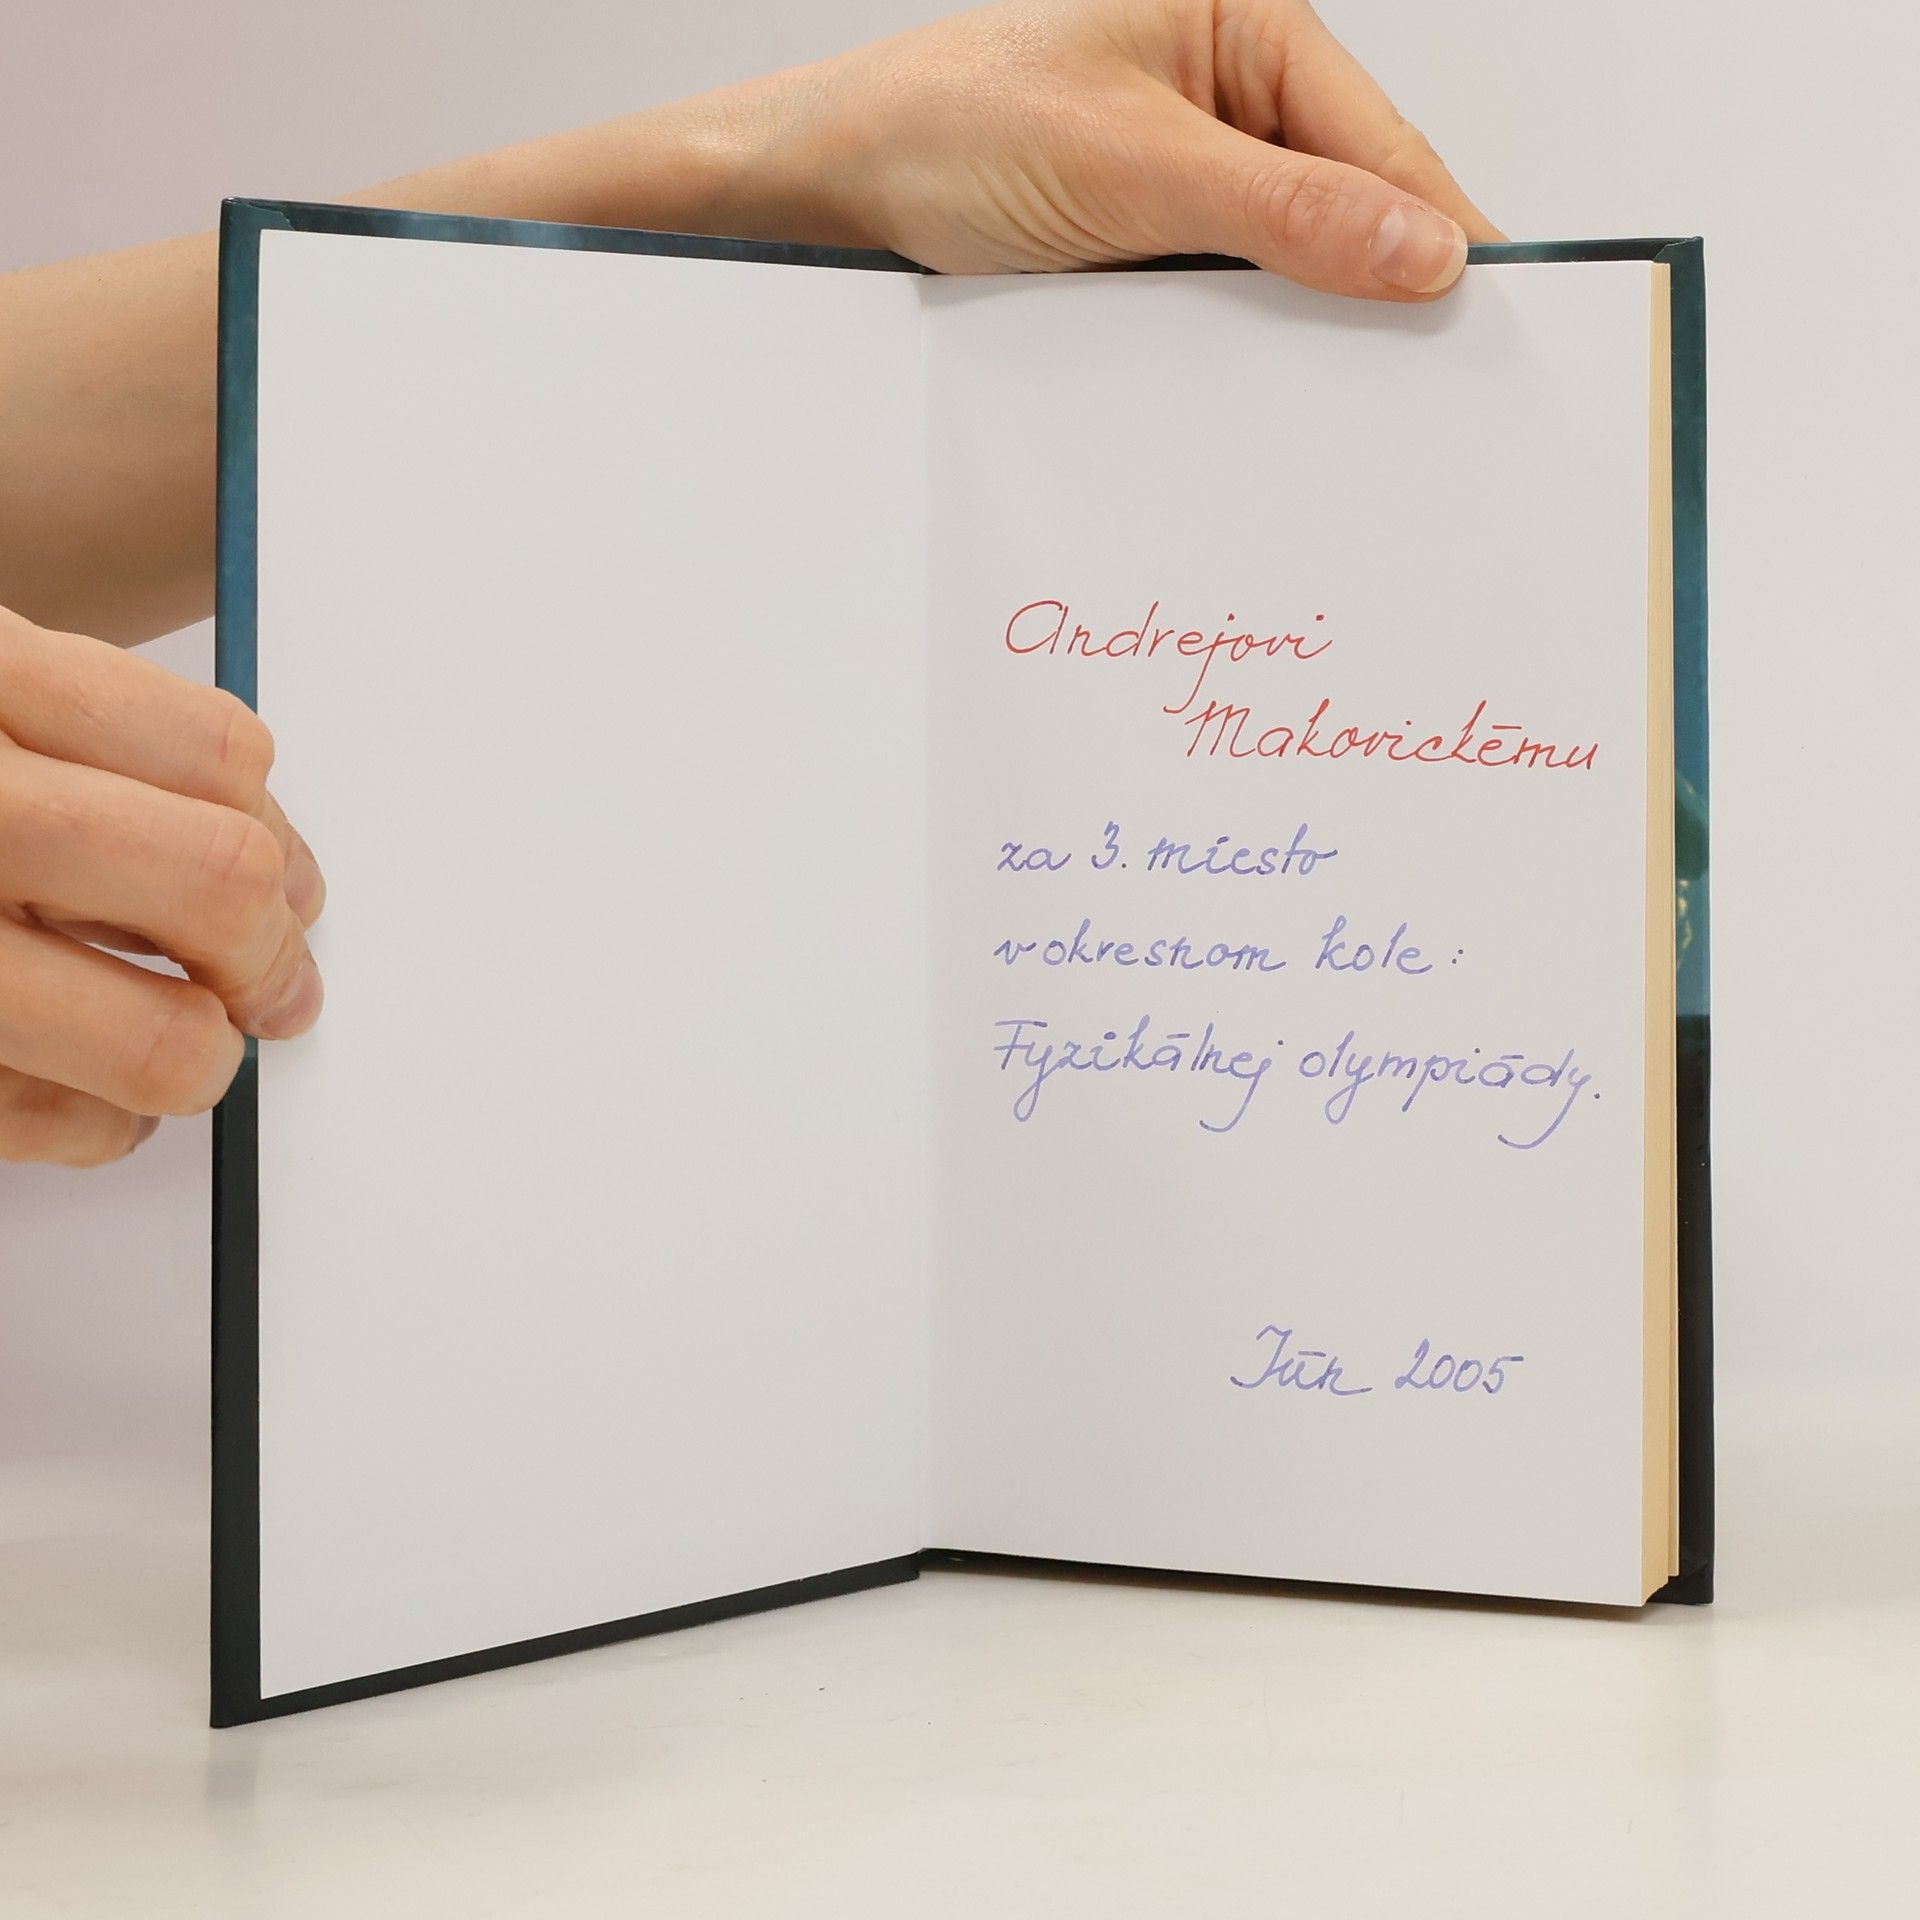 Andrejovi
Makovickému
za 3. miesto
v okresnom kole:
Fyzikálnej olympiády.
Jún 2005